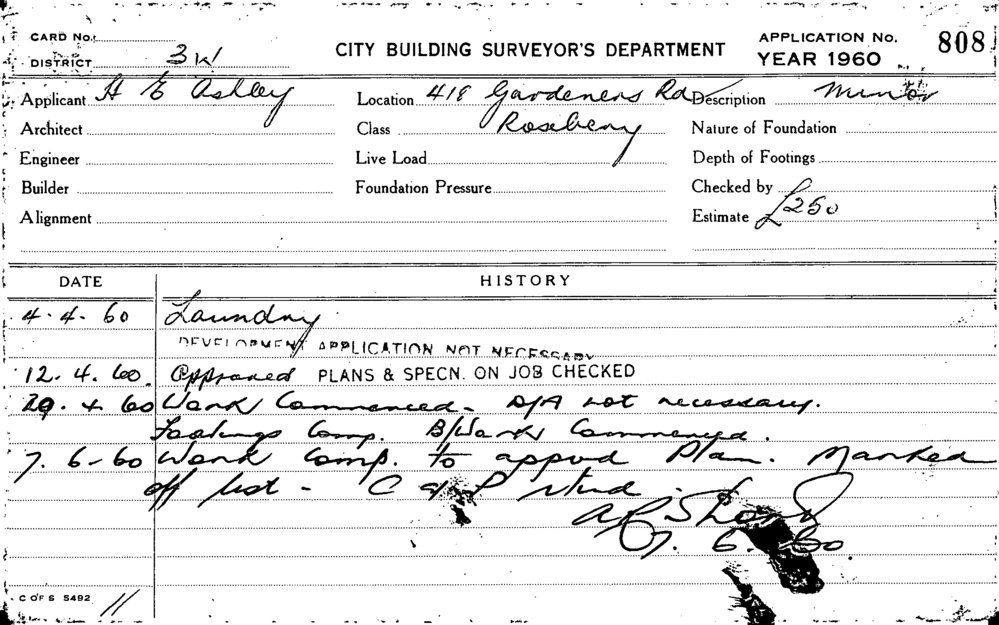 CARD No.
DISTRICT 3W
CITY BUILDING SURVEYOR'S DEPARTMENT
APPLICATION No. 808
YEAR 1960
Applicant H E Ashley
Location 418 Gardeners Rd
Description Minor
Architect
Class Rosebery
Nature of Foundation
Engineer
Live Load
Depth of Footings
Builder
Foundation Pressure
Checked by
Alignment
Estimate £250
DATE HISTORY
4.4.60 Laundry
DEVELOPMENT APPLICATION NOT NECESSARY
12.4.60. Approved PLANS & SPECN. ON JOB CHECKED
29.4.60 Work Commenced - D/A not necessary.
Footings Comp. B/Work Commenced.
7.6-60 Work Comp. to appvd Plan. Marked
off list - C of P
7.6.60.
C OF S 5492 11